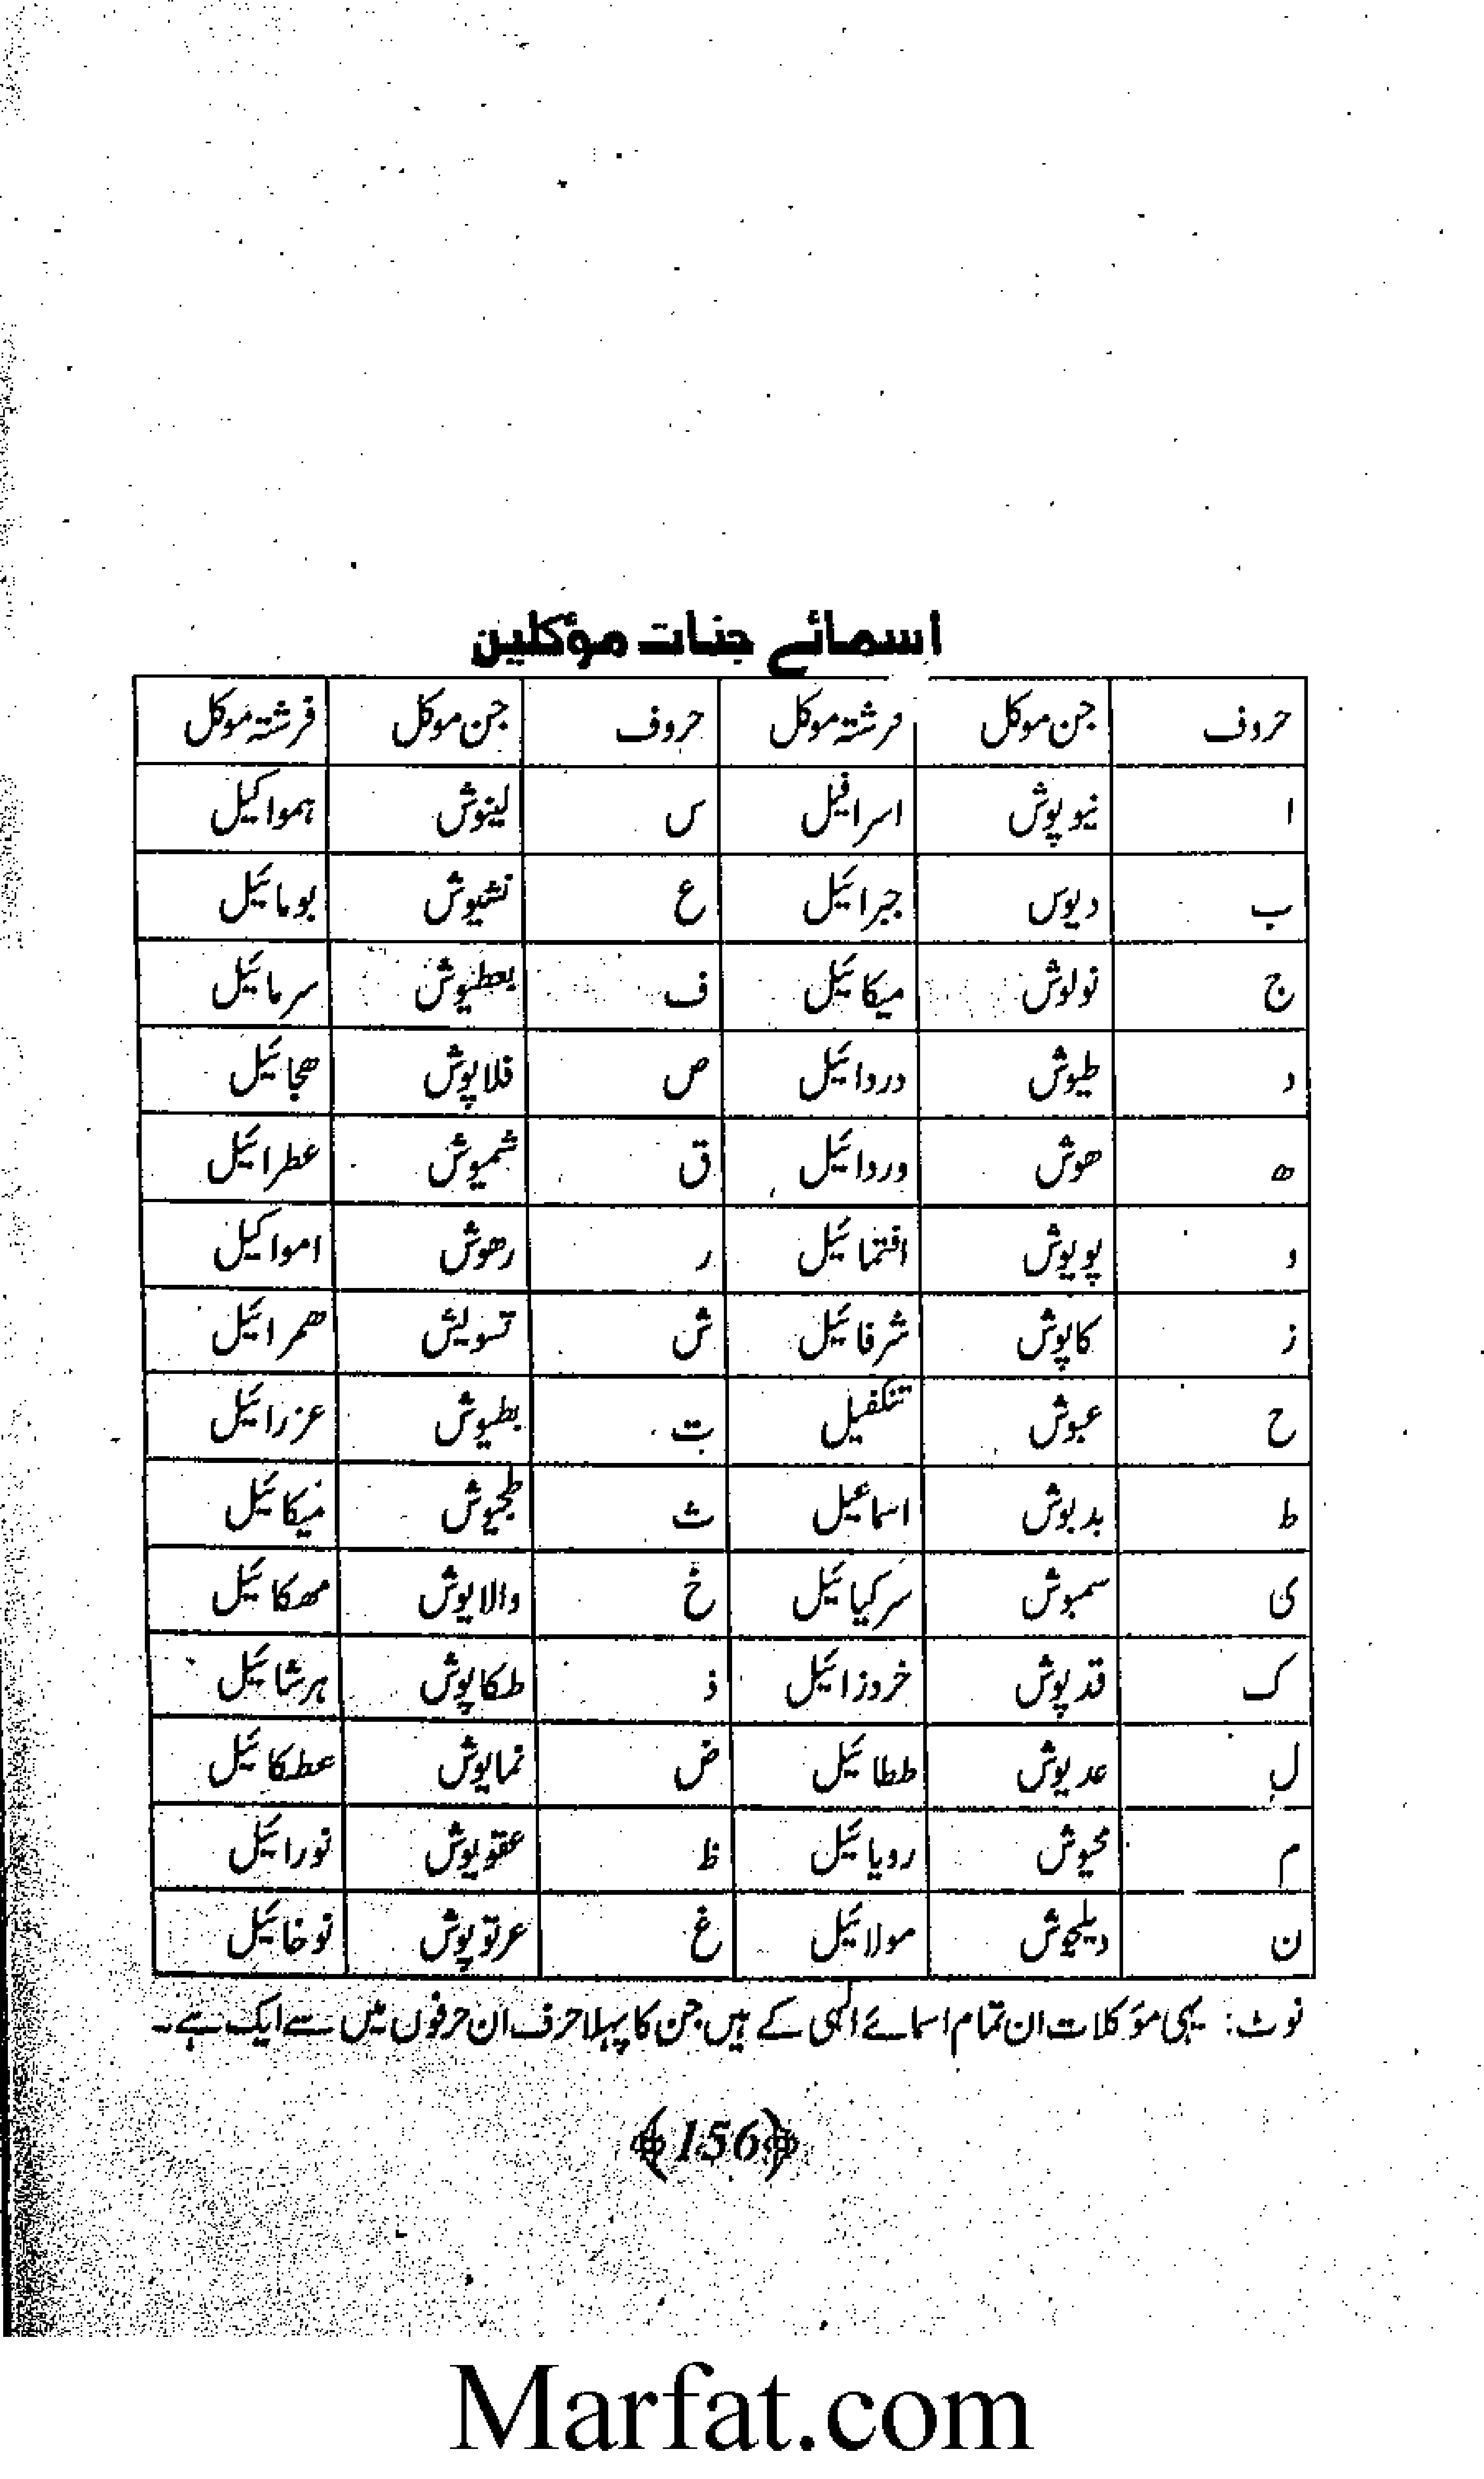 اسمائے جنات مؤکلین
حروف جن موکل فرشتہ موکل حروف جن موکل فرشتہ موکل
ا نیوپوش اسرافیل س لینوش ہمواکیل
ب دیوس جبرائیل ع نشیوش بومائیل
ج نولوش میکائیل ف یعطیوش سرمائیل
د طیوش دردائیل ص فلاپوش ھجائیل
ہ ھوش وردائیل ق شمیوش عطرائیل
و پویوش افتمائیل ر رھوش امواکیل
ز کاپوش شرفائیل ش تسویش ھمرائیل
ح عبوش تنکفیل ت بطیوش عزرائیل
ط بدبوش اسماعیل ث طجیوش میکائیل
ی سمبوش سرکیائیل خ والایوش مھکائیل
ک قدپوش خروزائیل ذ طکاپوش ہرشائیل
ل عدیوش ططائیل ض نمایوش عطکائیل
م مجیوش رویائیل ظ عقویوش نورائیل
ن دیلجوش مولائیل غ عرتوپوش نوخائیل
نوٹ: یہی مؤکلات ان تمام اسمائے الٰہی کے ہیں جن کا پہلا حرف ان حرفوں میں سے ایک ہے۔
156
Marfat.com